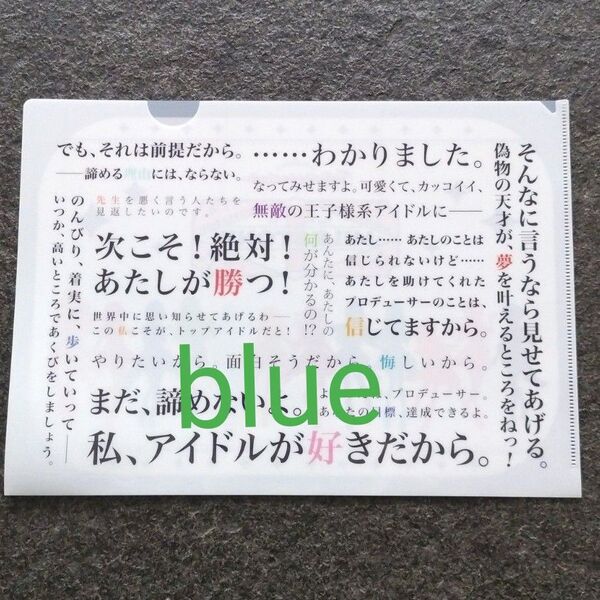 でも、それは前提だから。
――諦める理由には、ならない。
……わかりました。
なってみせますよ。可愛くて、カッコイイ、
無敵の王子様系アイドルに――
そんなに言うなら見せてあげる。
偽物の天才が、夢を叶えるところをねっ！
先生を悪く言う人たちを
見返したいのです。
のんびり、着実に、歩いていって――
いつか、高いところであくびをしましょう。
次こそ！絶対！
あたしが勝つ！
あんたに、あたしの
何が分かるの！？
あたし……あたしのことは
信じられないけど……
あたしを助けてくれた
プロデューサーのことは、
信じてますから。
世界中に思い知らせてあげるわ――
この私こそが、トップアイドルだと！
やりたいから。面白そうだから。悔しいから。
まだ、諦めないよ。
プロデューサー。
達成できるよ。
私、アイドルが好きだから。
blue